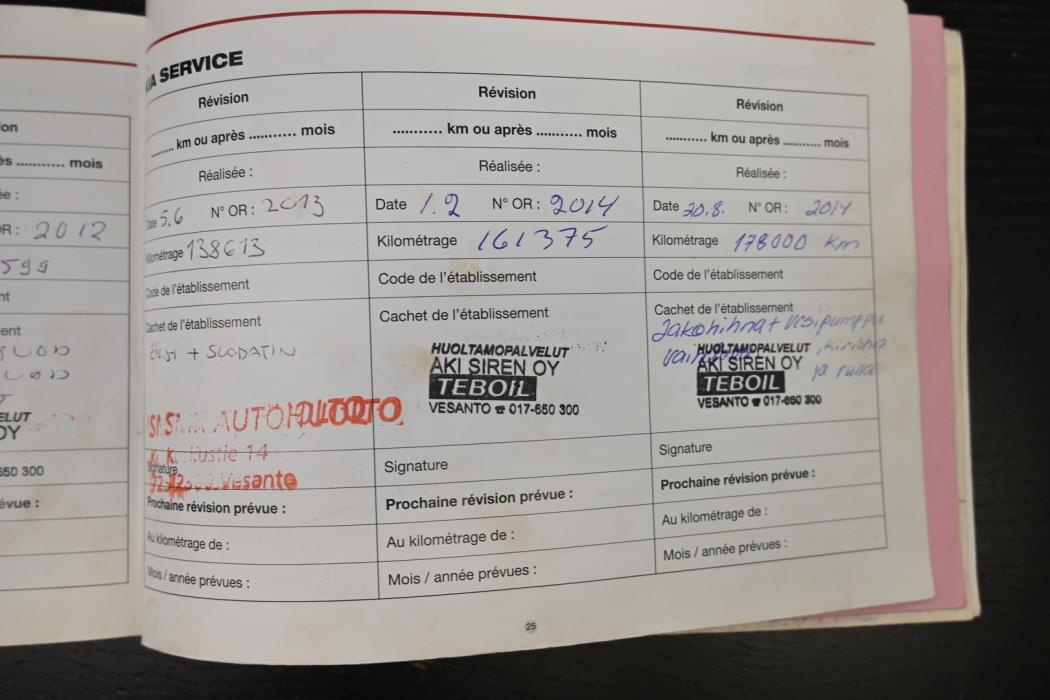 on
ès ........... mois
ée :
R : 2012
599
nt
ent
ELUT
OY
650 300
évue :
IA SERVICE
Révision
......... km ou après ........... mois
Réalisée :
Date 5.6 N° OR : 2013
Kilométrage 138613
Code de l'établissement
Cachet de l'établissement
ÖLJY + SUODATIN
AUTOHUOLTO
14
Vesanto
Signature
Prochaine révision prévue :
Au kilométrage de :
Mois / année prévues :
Révision
........... km ou après ........... mois
Réalisée :
Date 1.2 N° OR : 2014
Kilométrage 161375
Code de l'établissement
Cachet de l'établissement
HUOLTAMOPALVELUT
AKI SIREN OY
TEBOIL
VESANTO ☎ 017-650 300
Signature
Prochaine révision prévue :
Au kilométrage de :
Mois / année prévues :
Révision
........... km ou après ........... mois
Réalisée :
Date 20.8. N° OR : 2014
Kilométrage 178000 km
Code de l'établissement
Cachet de l'établissement
Jakohihna + vesipumppu
ja rulla
HUOLTAMOPALVELUT
AKI SIREN OY
TEBOIL
VESANTO ☎ 017-650 300
Signature
Prochaine révision prévue :
Au kilométrage de :
Mois / année prévues :
25